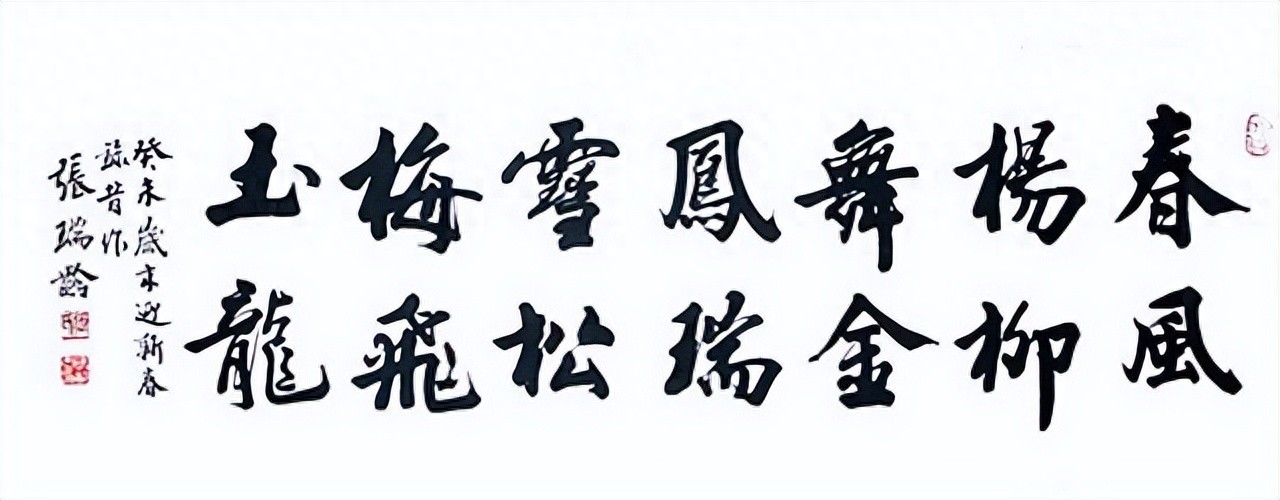 春風
楊柳
舞金
鳳瑞
雪松
梅飛
玉龍
癸未歲末迎新春
錄昔作
張瑞齡